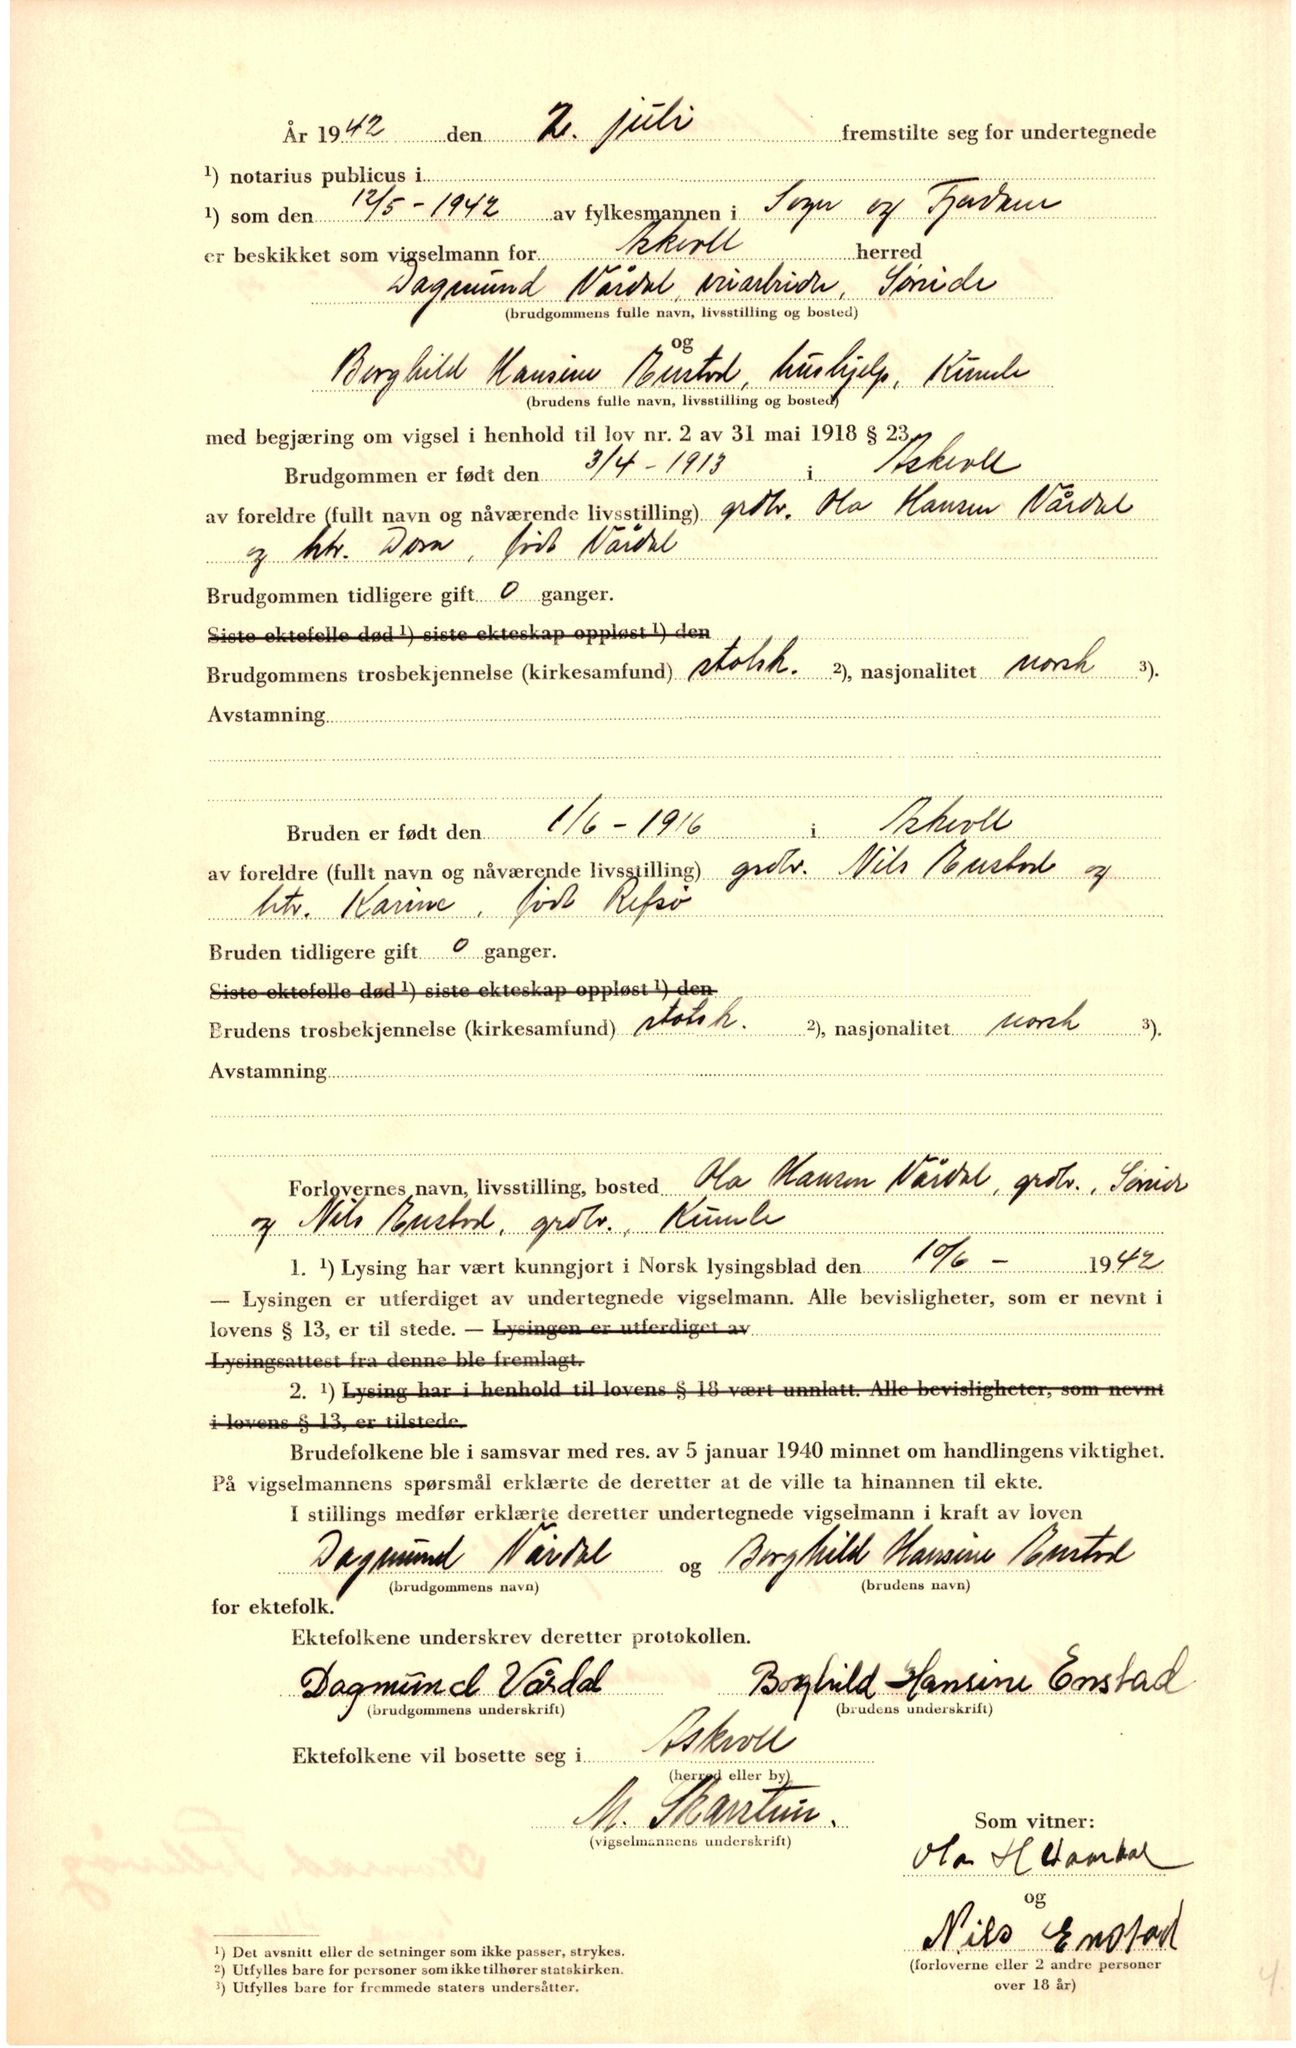 År 1942 den 2. juli fremstilte seg for undertegnede
¹) notarius publicus i
¹) som den 12/5 - 1942 av fylkesmannen i Sogn og Fjordane
er beskikket som vigselmann for Askvoll herred
Dagmund Vårdal, veiarbeider, Sørside
(brudgommens fulle navn, livsstilling og bosted)
og
Borghild Hansine Enstad, hushjelp, Kumle
(brudens fulle navn, livsstilling og bosted)
med begjæring om vigsel i henhold til lov nr. 2 av 31 mai 1918 § 23.
Brudgommen er født den 3/4 - 1913 i Askvoll
av foreldre (fullt navn og nåværende livsstilling) grdbr. Ola Hansen Vårdal
og htr. Dora, født Vårdal
Brudgommen tidligere gift 0 ganger.
Siste ektefelle død ¹) siste ekteskap oppløst ¹) den
Brudgommens trosbekjennelse (kirkesamfund) statsk. ²), nasjonalitet norsk ³).
Avstamning
Bruden er født den 1/6 - 1916 i Askvoll
av foreldre (fullt navn og nåværende livsstilling) grdbr. Nils Enstad og
htr. Karine, født Refsø
Bruden tidligere gift 0 ganger.
Siste ektefelle død ¹) siste ekteskap oppløst ¹) den
Brudens trosbekjennelse (kirkesamfund) statsk. ²), nasjonalitet norsk ³).
Avstamning
Forlovernes navn, livsstilling, bosted Ola Hansen Vårdal, grdbr., Sørside
og Nils Enstad, grdbr., Kumle
1. ¹) Lysing har vært kunngjort i Norsk lysingsblad den 10/6 - 1942
— Lysingen er utferdiget av undertegnede vigselmann. Alle bevisligheter, som er nevnt i
lovens § 13, er til stede. — Lysingen er utferdiget av
Lysingsattest fra denne ble fremlagt.
2. ¹) Lysing har i henhold til lovens § 18 vært unnlatt. Alle bevisligheter, som nevnt
i lovens § 13, er tilstede.
Brudefolkene ble i samsvar med res. av 5 januar 1940 minnet om handlingens viktighet.
På vigselmannens spørsmål erklærte de deretter at de ville ta hinannen til ekte.
I stillings medfør erklærte deretter undertegnede vigselmann i kraft av loven
Dagmund Vårdal og Borghild Hansine Enstad
(brudgommens navn) (brudens navn)
for ektefolk.
Ektefolkene underskrev deretter protokollen.
Dagmund Vårdal Borghild Hansine Enstad
(brudgommens underskrift) (brudens underskrift)
Ektefolkene vil bosette seg i Askvoll
(herred eller by)
M. Skarstun.
(vigselmannens underskrift)
Som vitner:
Ola H Vaardal
og
Nils Enstad
(forloverne eller 2 andre personer
over 18 år)
¹) Det avsnitt eller de setninger som ikke passer, strykes.
²) Utfylles bare for personer som ikke tilhører statskirken.
³) Utfylles bare for fremmede staters undersåtter.
4.